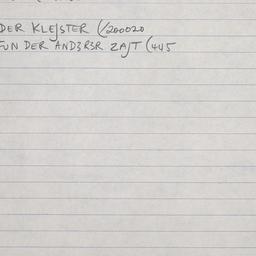 DER KLEJSTER (/200020
FUN DER AND3RSR ZAJT (445